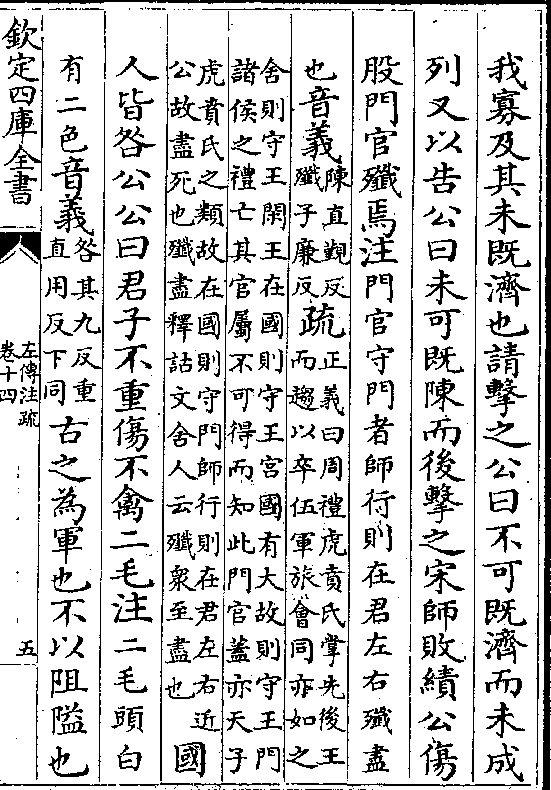 我寡及其未既濟也請擊之公曰不可既濟而未成
列又以告公曰未可既陳而後擊之宋師敗績公傷
股門官殲焉注門官守門者師行則在君左右殲盡
也音義陳直覲反
殲子廉反疏正義曰周禮虎賁氏掌先後王
而趨以卒伍軍旅會同亦如之
舍則守王閑王在國則守王宮國有大故則守王門
諸侯之禮亡其官屬不可得而知此門官蓋亦天子
虎賁氏之類故在國則守門師行則在君左右近
公故盡死也殲盡釋詁文舍人云殲衆至盡也國
人皆咎公公曰君子不重傷不禽二毛注二毛頭白
有二色音義咎其九反重
直用反下同古之為軍也不以阻隘也
欽定四庫全書
左傳注疏
卷十四
五